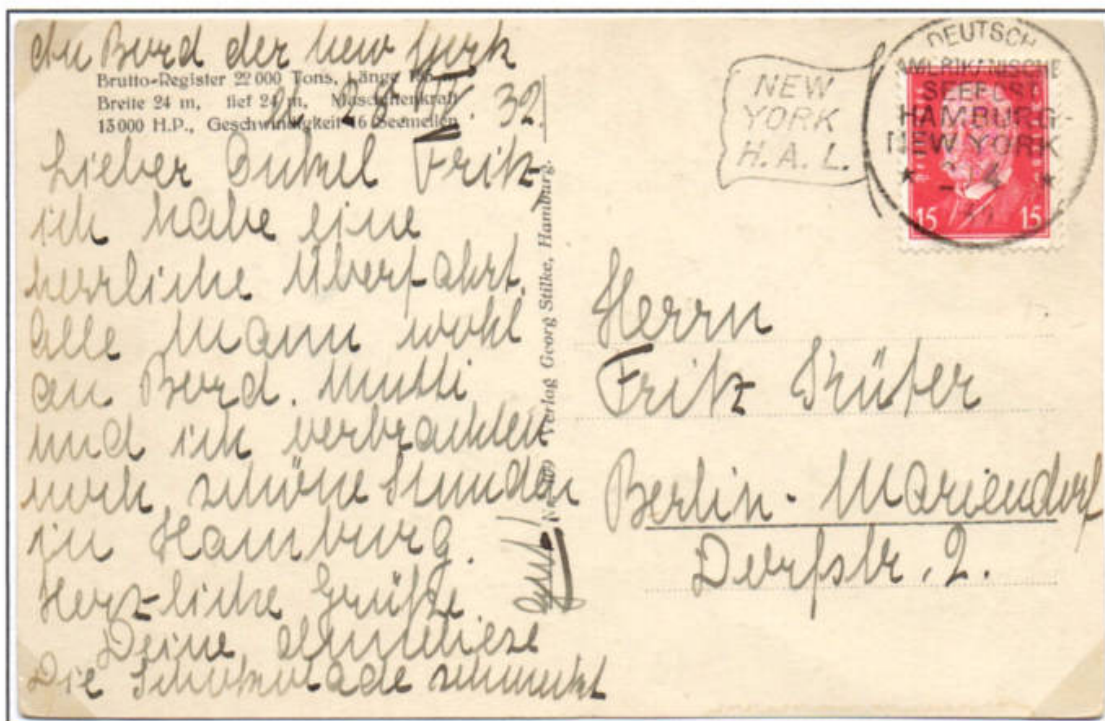 An Bord der New York
Brutto-Register 22 000 Tons, Länge
Breite 24 m, tief 24 m, Maschinenkraft
13 000 H.P., Geschwindigkeit 16 Seemeilen
32.
Lieber Onkel Fritz,
ich habe eine
herrliche Überfahrt.
Alle Mann wohl
an Bord. Mutti
und ich verbrachten
noch schöne Stunden
in Hamburg.
Herzliche Grüße
Deine Anneliese
Die Schokolade schmeckt
gut!
Verlag Georg Stilke, Hamburg.
NEW
YORK
H.A.L.
DEUTSCH
AMERIKANISCHE
SEEPOST
HAMBURG-
NEW YORK
15 15
Herrn
Fritz Küter
Berlin-Mariendorf
Dorfstr. 2.